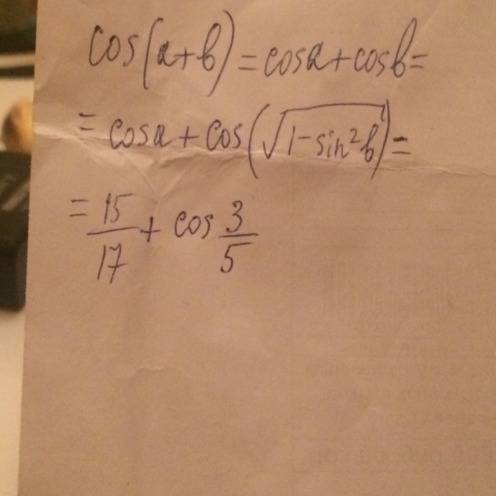 cos(a+b)=cosa+cosb=
=cosa+cos(√(1-sin²b))=
=15/17+cos 3/5